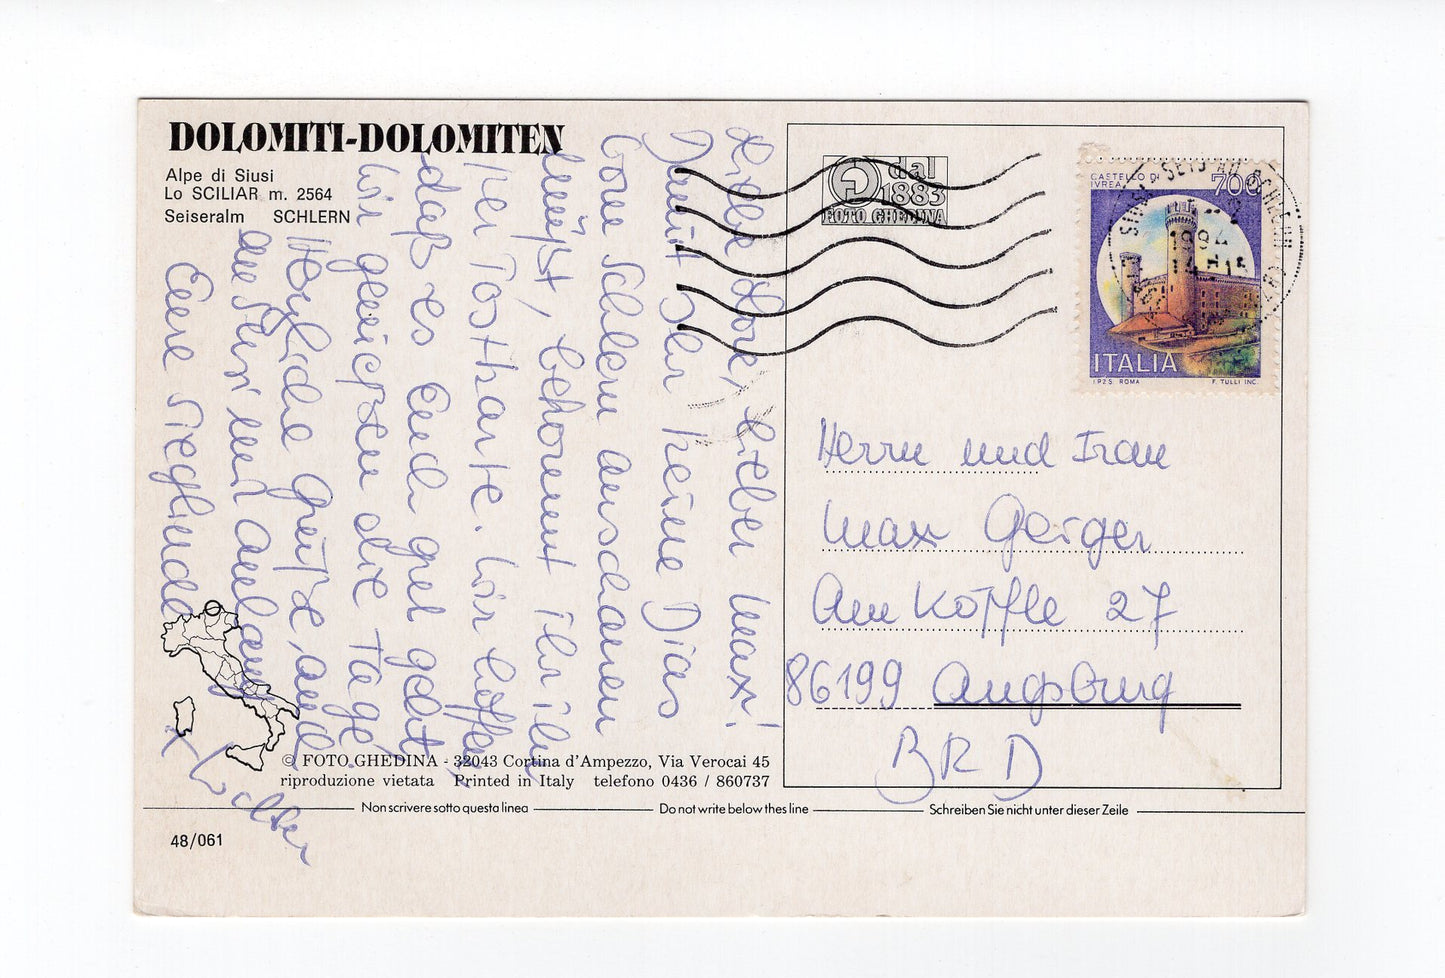 DOLOMITI-DOLOMITEN
Alpe di Siusi
Lo SCILIAR m. 2564
Seiseralm SCHLERN
dal
1883
FOTO GHEDINA
CASTELLO DI
IVREA
700
ITALIA
I.P.Z.S. ROMA F. TULLI INC.
1994
Liebe Lore, lieber Max!
Damit Ihr keine Dias
vom Schlern anschauen
müßt, bekommt Ihr
Karte. Wir hoffen,
daß es Euch gut geht
Wir genießen die Tage
Herzliche Grüße, auch
an und
Eure Sieglinde
Herrn und Frau
Max Geiger
Am Köpfle 27
86199 Augsburg
BRD
© FOTO GHEDINA - 32043 Cortina d'Ampezzo, Via Verocai 45
riproduzione vietata Printed in Italy telefono 0436 / 860737
Non scrivere sotto questa linea Do not write below thes line Schreiben Sie nicht unter dieser Zeile
48/061